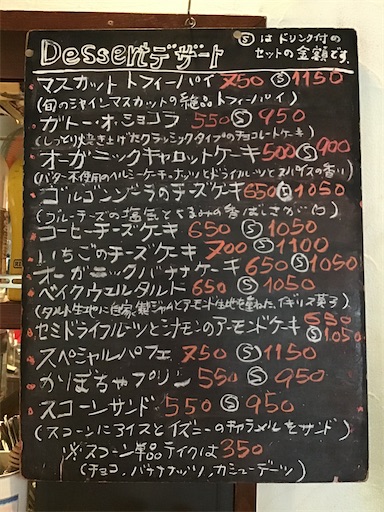 Dessert デザート
Ⓢ は ドリンク付の
セットの金額です。
マスカット トフィーパイ 750 Ⓢ 1150
(旬のシャインマスカットの絶品トフィーパイ)
ガトー・オ・ショコラ 550 Ⓢ 950
(しっとり焼き上げたクラシックタイプのチョコレートケーキ)
オーガニックキャロットケーキ 500 Ⓢ 900
(バター不使用のヘルシーケーキ・ナッツとドライフルーツとスパイスの香り)
ゴルゴンゾーラのチーズケーキ 650 Ⓢ 1050
(ブルーチーズの塩気とくるみの香ばしさが)
コーヒーチーズケーキ 650 Ⓢ 1050
いちごのチーズケーキ 700 Ⓢ 1100
オーガニックバナナケーキ 650 Ⓢ 1050
ベイクウェルタルト 650 Ⓢ 1050
(タルト生地に自家製ジャムとアーモンド生地を重ねた、イギリス菓子)
セミドライフルーツとシナモンのアーモンドケーキ 650
Ⓢ 1050
スペシャルパフェ 750 Ⓢ 1150
かぼちゃプリン 550 Ⓢ 950
スコーンサンド 550 Ⓢ 950
(スコーンにアイスとイズニーのキャラメルをサンド)
※スコーン単品テイクは 350
(チョコ、バナナナッツ、カシューデーツ)